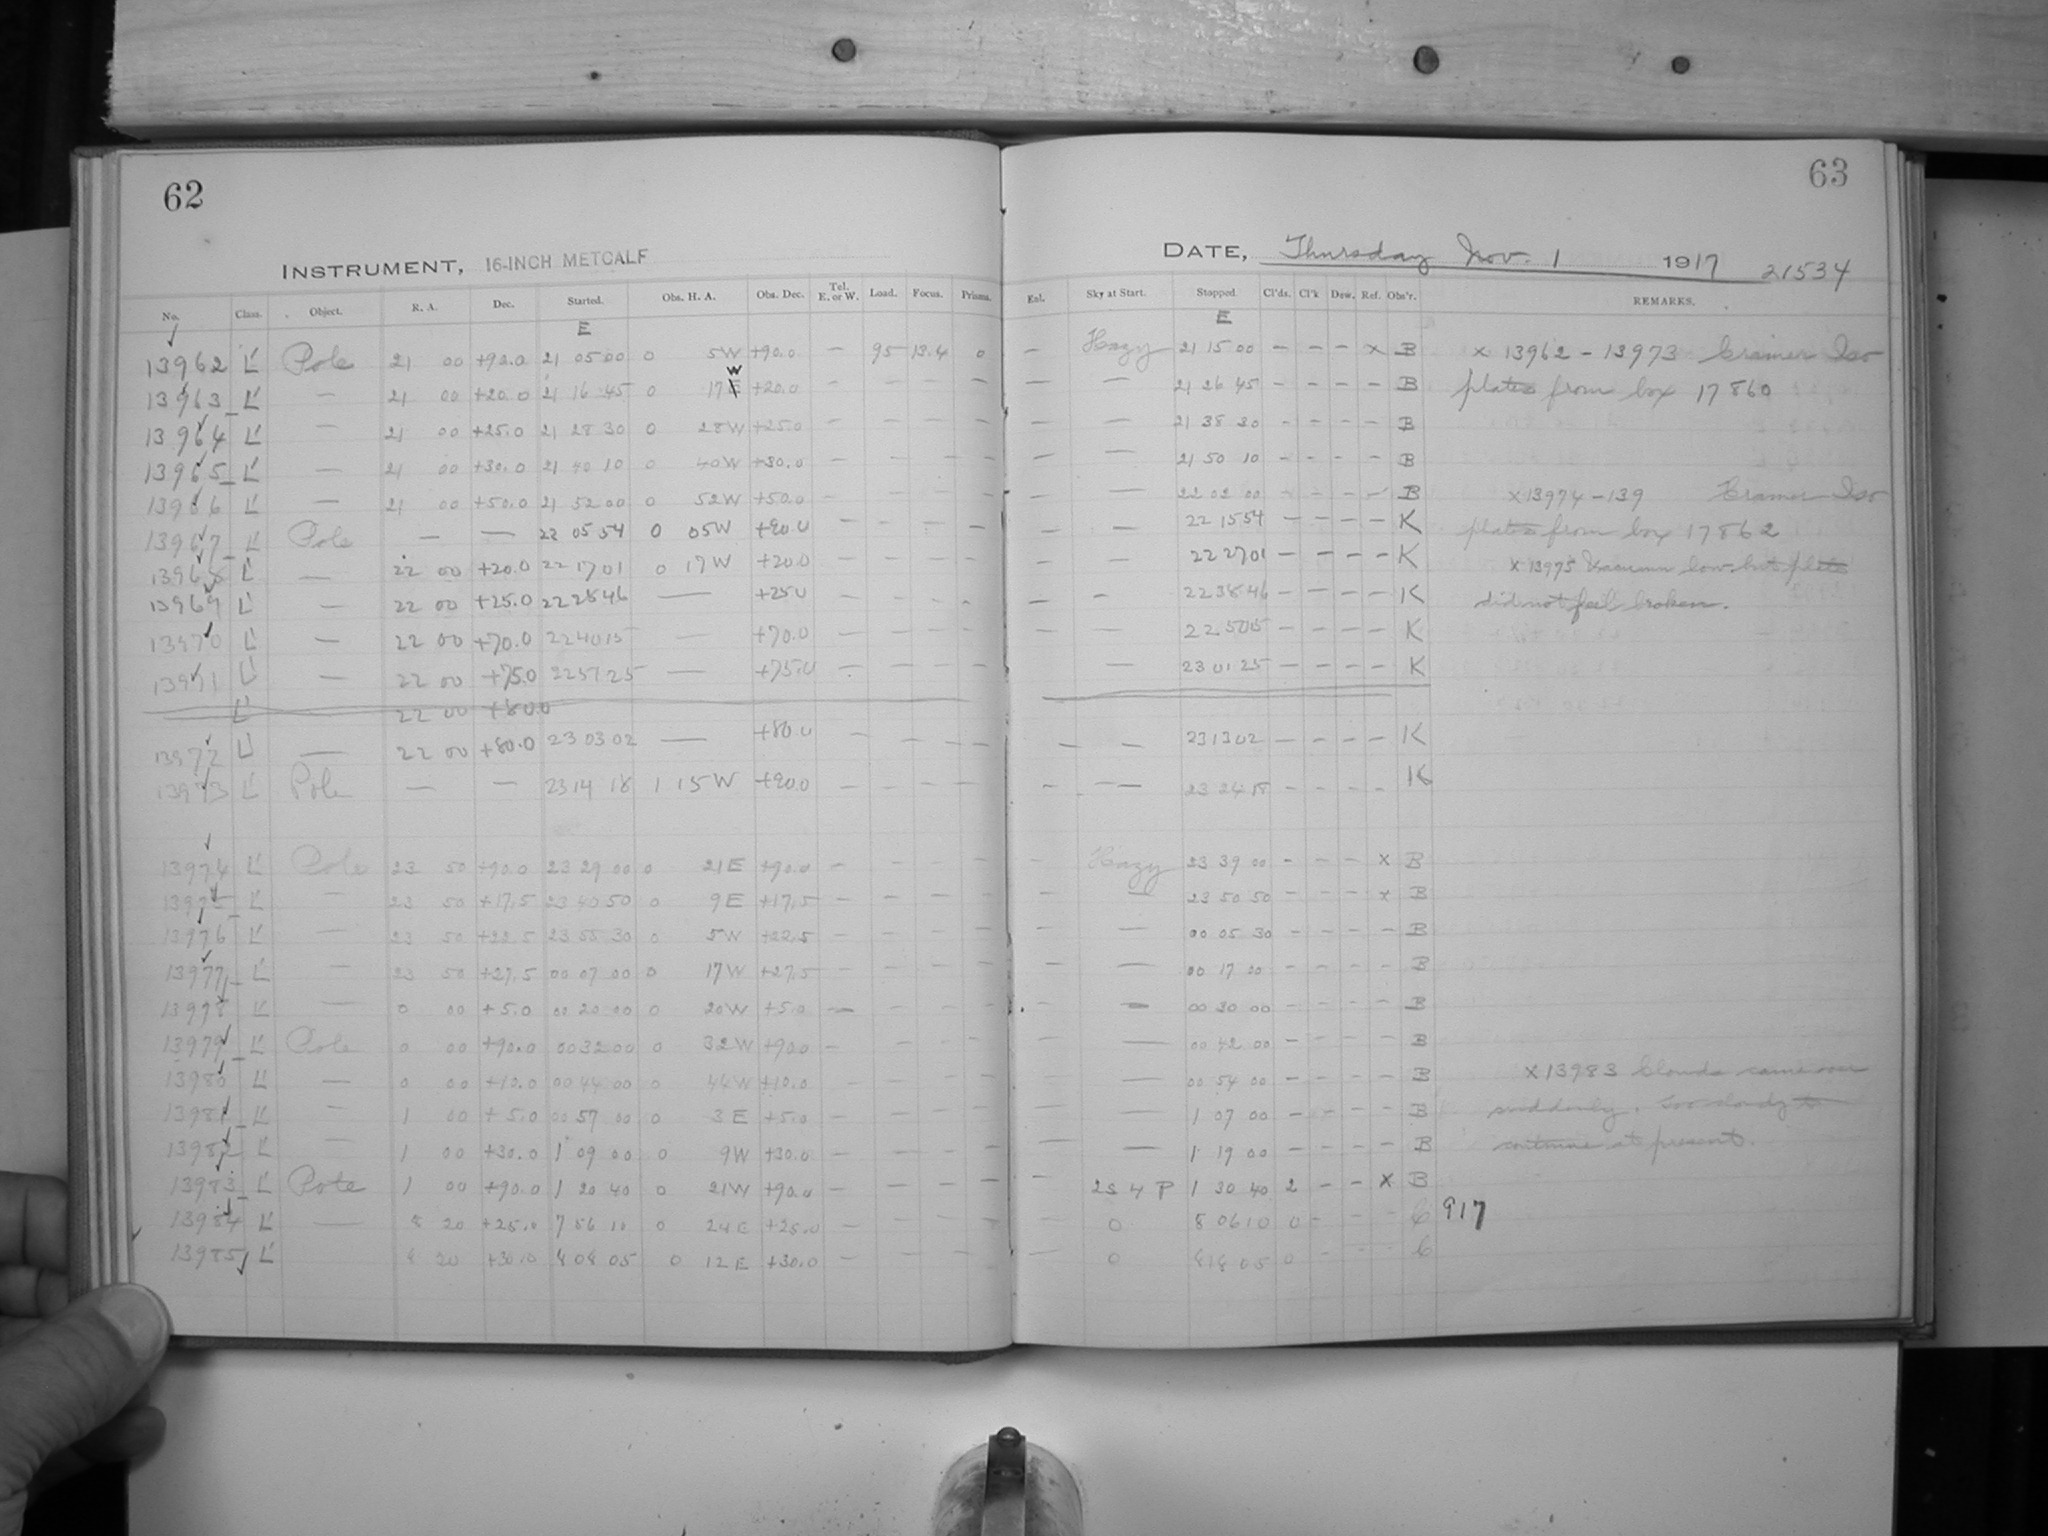 62
63
INSTRUMENT, 16-INCH METCALF
DATE, Thursday Nov. 1 1917 21534
No. Class. Object. R. A. Dec. Started. Obs. H. A. Obs. Dec. Tel. E. or W. Load. Focus. Prisms. Eml. Sky at Start. Stopped. Cl'ds. Cl'k Dew. Ref. Obs'r. REMARKS.
E E
13962 L' Pole 21 00 +90.0 21 05 00 0 5W +90.0 — 95 13.4 0 — Hazy 21 15 00 — — — x B x 13962 - 13973 Cramer Iso
W
13963 L' — 21 00 +20.0 21 16 45 0 17E +20.0 — — — — — — 21 26 45 — — — — B plates from box 17860
13964 L' — 21 00 +25.0 21 28 30 0 28W +25.0 — — — — — — 21 38 30 — — — — B
13965 L' — 21 00 +30.0 21 40 10 0 40W +30.0 — — — — — — 21 50 10 — — — — B
13966 L' — 21 00 +50.0 21 52 00 0 52W +50.0 — — — — — — 22 02 00 — — — — B x 13974 - 139 Cramer Iso
13967 L' Pole — — 22 05 54 0 05W +90.0 — — — — — — 22 15 54 — — — — K plates from box 17862
13968 L' — 22 00 +20.0 22 17 01 0 17W +20.0 — — — — — — 22 27 01 — — — — K x 13975 Vacuum low but plate
13969 L' — 22 00 +25.0 22 28 46 — +25.0 — — — — — — 22 38 46 — — — — K did not feel broken.
13970 L' — 22 00 +70.0 22 40 15 — +70.0 — — — — — — 22 50 15 — — — — K
13971 L' — 22 00 +75.0 22 51 25 — +75.0 — — — — — 23 01 25 — — — — K
L' 22 00 +80.0
13972 L' — 22 00 +80.0 23 03 02 — +80.0 — — — — — — 23 13 02 — — — — K
13973 L' Pole — — 23 14 18 1 15W +90.0 — — — — — — 23 24 18 — — — — K
13974 L' Pole 23 50 +90.0 23 29 00 0 21E +90.0 — — — — — Hazy 23 39 00 — — — x B
13975 L' — 23 50 +17.5 23 40 50 0 9E +17.5 — — — — — — 23 50 50 — — — x B
13976 L' — 23 50 +22.5 23 55 30 0 5W +22.5 — — — — — — 00 05 30 — — — — B
13977 L' — 23 50 +27.5 00 07 00 0 17W +27.5 — — — — — — 00 17 00 — — — — B
13978 L' — 0 00 +5.0 00 20 00 0 20W +5.0 — — — — — — 00 30 00 — — — — B
13979 L' Pole 0 00 +90.0 00 32 00 0 32W +90.0 — — — — — 00 42 00 — — — — B
13980 L' — 0 00 +10.0 00 44 00 0 44W +10.0 — — — — — — 00 54 00 — — — — B x 13983 Clouds came over
13981 L' — 1 00 +5.0 00 57 00 0 3E +5.0 — — — — — — 1 07 00 — — — — B suddenly. Too cloudy to
13982 L' — 1 00 +30.0 1 09 00 0 9W +30.0 — — — — — — 1 19 00 — — — — B continue at present.
13983 L' Pole 1 00 +90.0 1 20 40 0 21W +90.0 — — — — — 2S 4 P 1 30 40 2 — — x B
13984 L' — 8 20 +25.0 7 56 10 0 24E +25.0 — — — — — 0 8 06 10 0 — — — C 917
13985 L' 8 20 +30.0 8 08 05 0 12E +30.0 — — — — — 0 8 18 05 0 — — — C